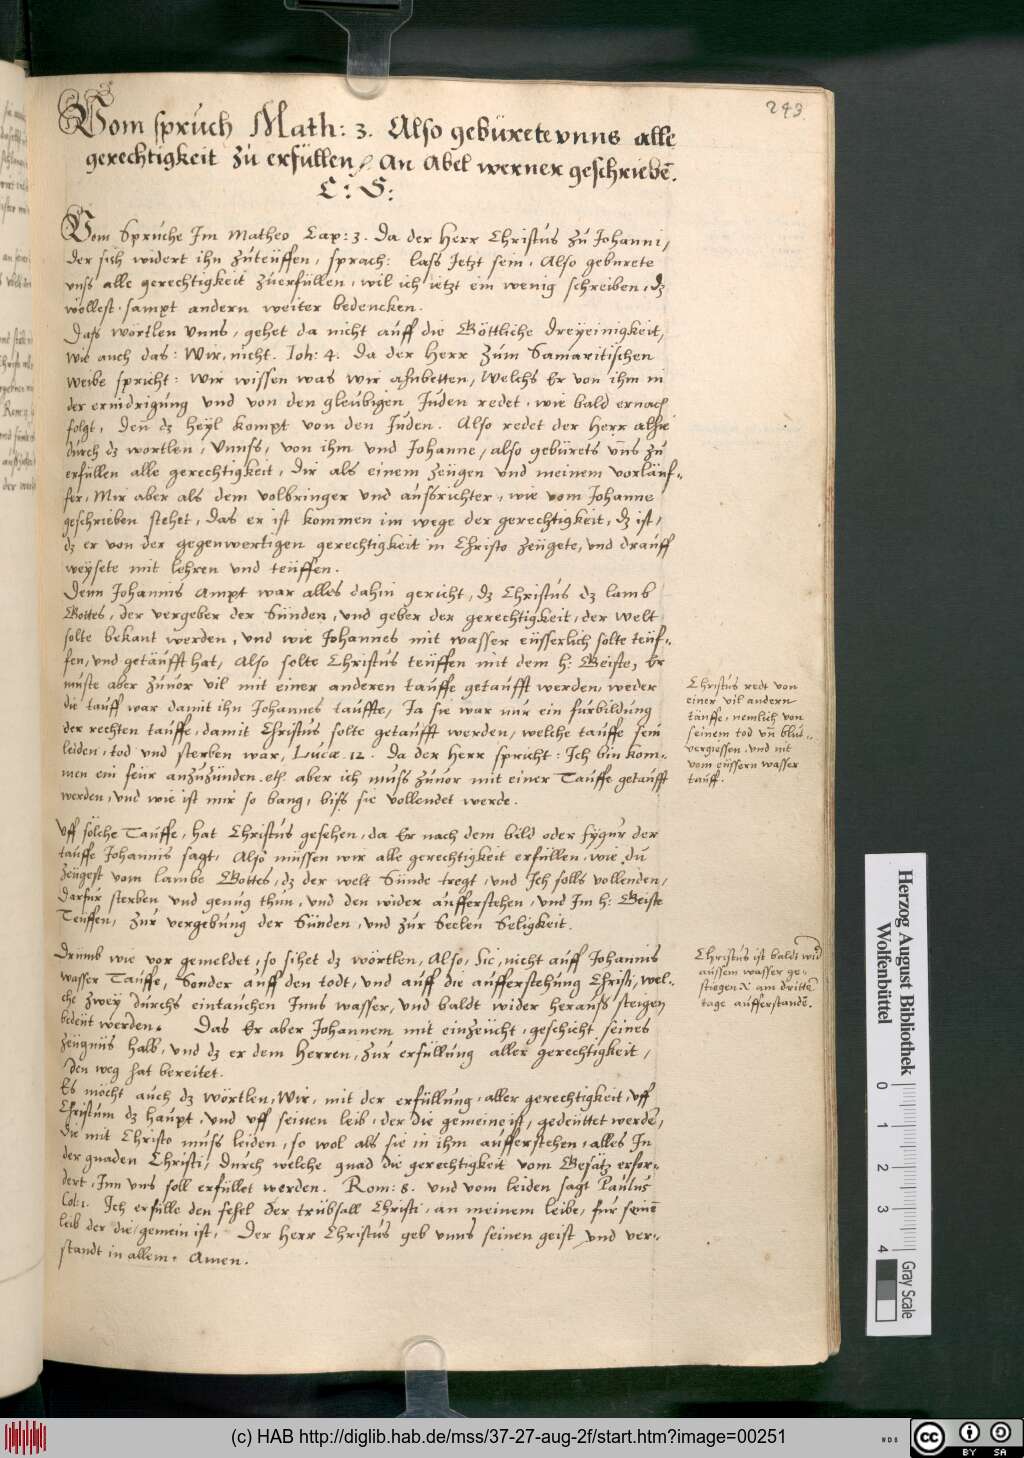 243.
Vom spruch Math: 3. Also gebürete vnns alle
gerechtigkeit zu erfüllen, An Abel werner geschriebē.
C: S:
Vom Spruche Im Matheo Cap: 3. Da der Herr Christus zu Johanni,
der sich widert ihn zuteüffen, sprach: lass Jetzt sein, Also geburete
vnss alle gerechtigkeit zuerfüllen, wil ich ietzt ein wenig schreiben, dz
wöllest sampt andern weiter bedencken.
Dass wörtlen Vnns, gehet da nicht auff die Göttliche dreyeinigkeit,
wie auch das: Wir, nicht. Joh: 4. Da der Herr zum Samaritischen
weibe spricht: Wir wissen was wir ahnbetten, Welchs Er von ihm in
der ernidrigung vnd von den gleubigen Juden redet, wie bald ernach
folgt, Den̄ dz heyl kompt von den Juden. Also redet der Herr alhie
durch dz wortlen, Vnnss, von ihm vnd Johanne, also gebürets vn̄s zu
erfüllen alle gerechtigkeit, Dir als einem zeügen vnd meinem vorläuf-
fer, Mir aber als dem volbringer vnd aussrichter, wie vom Johanne
geschrieben stehet, das er ist kommen im wege der gerechtigkeit, dz ist,
dz er von der gegenwertigen gerechtigkeit in Christo zeügete, vnd drauff
weysete mit lehren vnd teüffen.
Denn Johannis Ampt war alles dahin gericht, dz Christus dz lamb
Gottes, der vergeber der Sünden, vnd geber der gerechtigkeit, der welt
solte bekant werden, vnd wie Johannes mit wasser eüsserlich solte teüf-
fen, vnd getäufft hat, Also solte Christus teüffen mit dem h: Geiste, Er
muste aber zuuor vil mit einer anderen tauffe getaufft werden, weder
die tauff war damit ihn Johannes tauffte, Ja sie war nur ein fürbildung
der rechten tauffe, damit Christus solte getaufft werden, welche tauffe sein
leiden, tod vnd sterben war, Lucæ. 12. Da der Herr spricht: Ich bin kom-
men ein feür anzuzünden. etc. aber ich muss zuuor mit einer Tauffe getaufft
werden, vnd wie ist mir so bang, biss sie vollendet werde.
Christus redt von
einer vil andern
täuffe, nemlich von
seinem tod vn̄ blut-
vergiessen, vnd nit
vom eüssern wasser
tauff.
Vff sölche Tauffe, hat Christus gesehen, da Er nach dem bild oder fygur der
tauffe Johannis sagt, Also müssen wir alle gerechtigkeit erfüllen, wie du
zeügest vom lambe Gottes, dz der welt Sünde tregt, vnd Ich solls vollenden,
Darfür sterben vnd genug thun, vnd den wider aufferstehen, vnd Im h: Geiste
Teüffen, zur vergebung der Sünden, vnd zur Seelen Seligkeit.
Drumb wie vor gemeldet, so sihet dz wörtlen, Also, hie, nicht auff Johannis
wasser Tauffe, Sonder auff den todt, vnd auff die aufferstehung Christi, wel-
che zwey durchs eintauchen Inns wasser, vnd baldt wider herauss steigen
bedeüt werden. Das Er aber Johannem mit einzeücht, geschicht seines
zeügnüs halb, vnd dz er dem Herren, zur erfüllung aller gerechtigkeit,
den weg hat bereitet.
Christus ist baldt wid
aussem wasser ge-
stiegen & am dritte
tage aufferstandē.
Es möcht auch dz wörtlen, Wir, mit der erfüllung, aller gerechtigkeit, vff
Christum dz haupt, vnd vff seinen leib, der die gemeine ist, gedeüttet werdē,
die mit Christo muss leiden, so wol als sie in ihm aufferstehen, alles In
der gnaden Christi, durch welche gnad die gerechtigkeit vom Gesätz erfor-
dert, Inn vns soll erfüllet werden. Rom: 8. vnd vom leiden sagt Paulus
Col: 1. Ich erfülle den fehel der trübsall Christi, an meinem leibe, für seinē
leib der die gemein ist, Der Herr Christus geb vnns seinen geist vnd ver-
standt in allem. Amen.
Herzog August Bibliothek
Wolfenbüttel
0 1 2 3 4
Gray Scale
(c) HAB http://diglib.hab.de/mss/37-27-aug-2f/start.htm?image=00251
WDB
cc BY SA